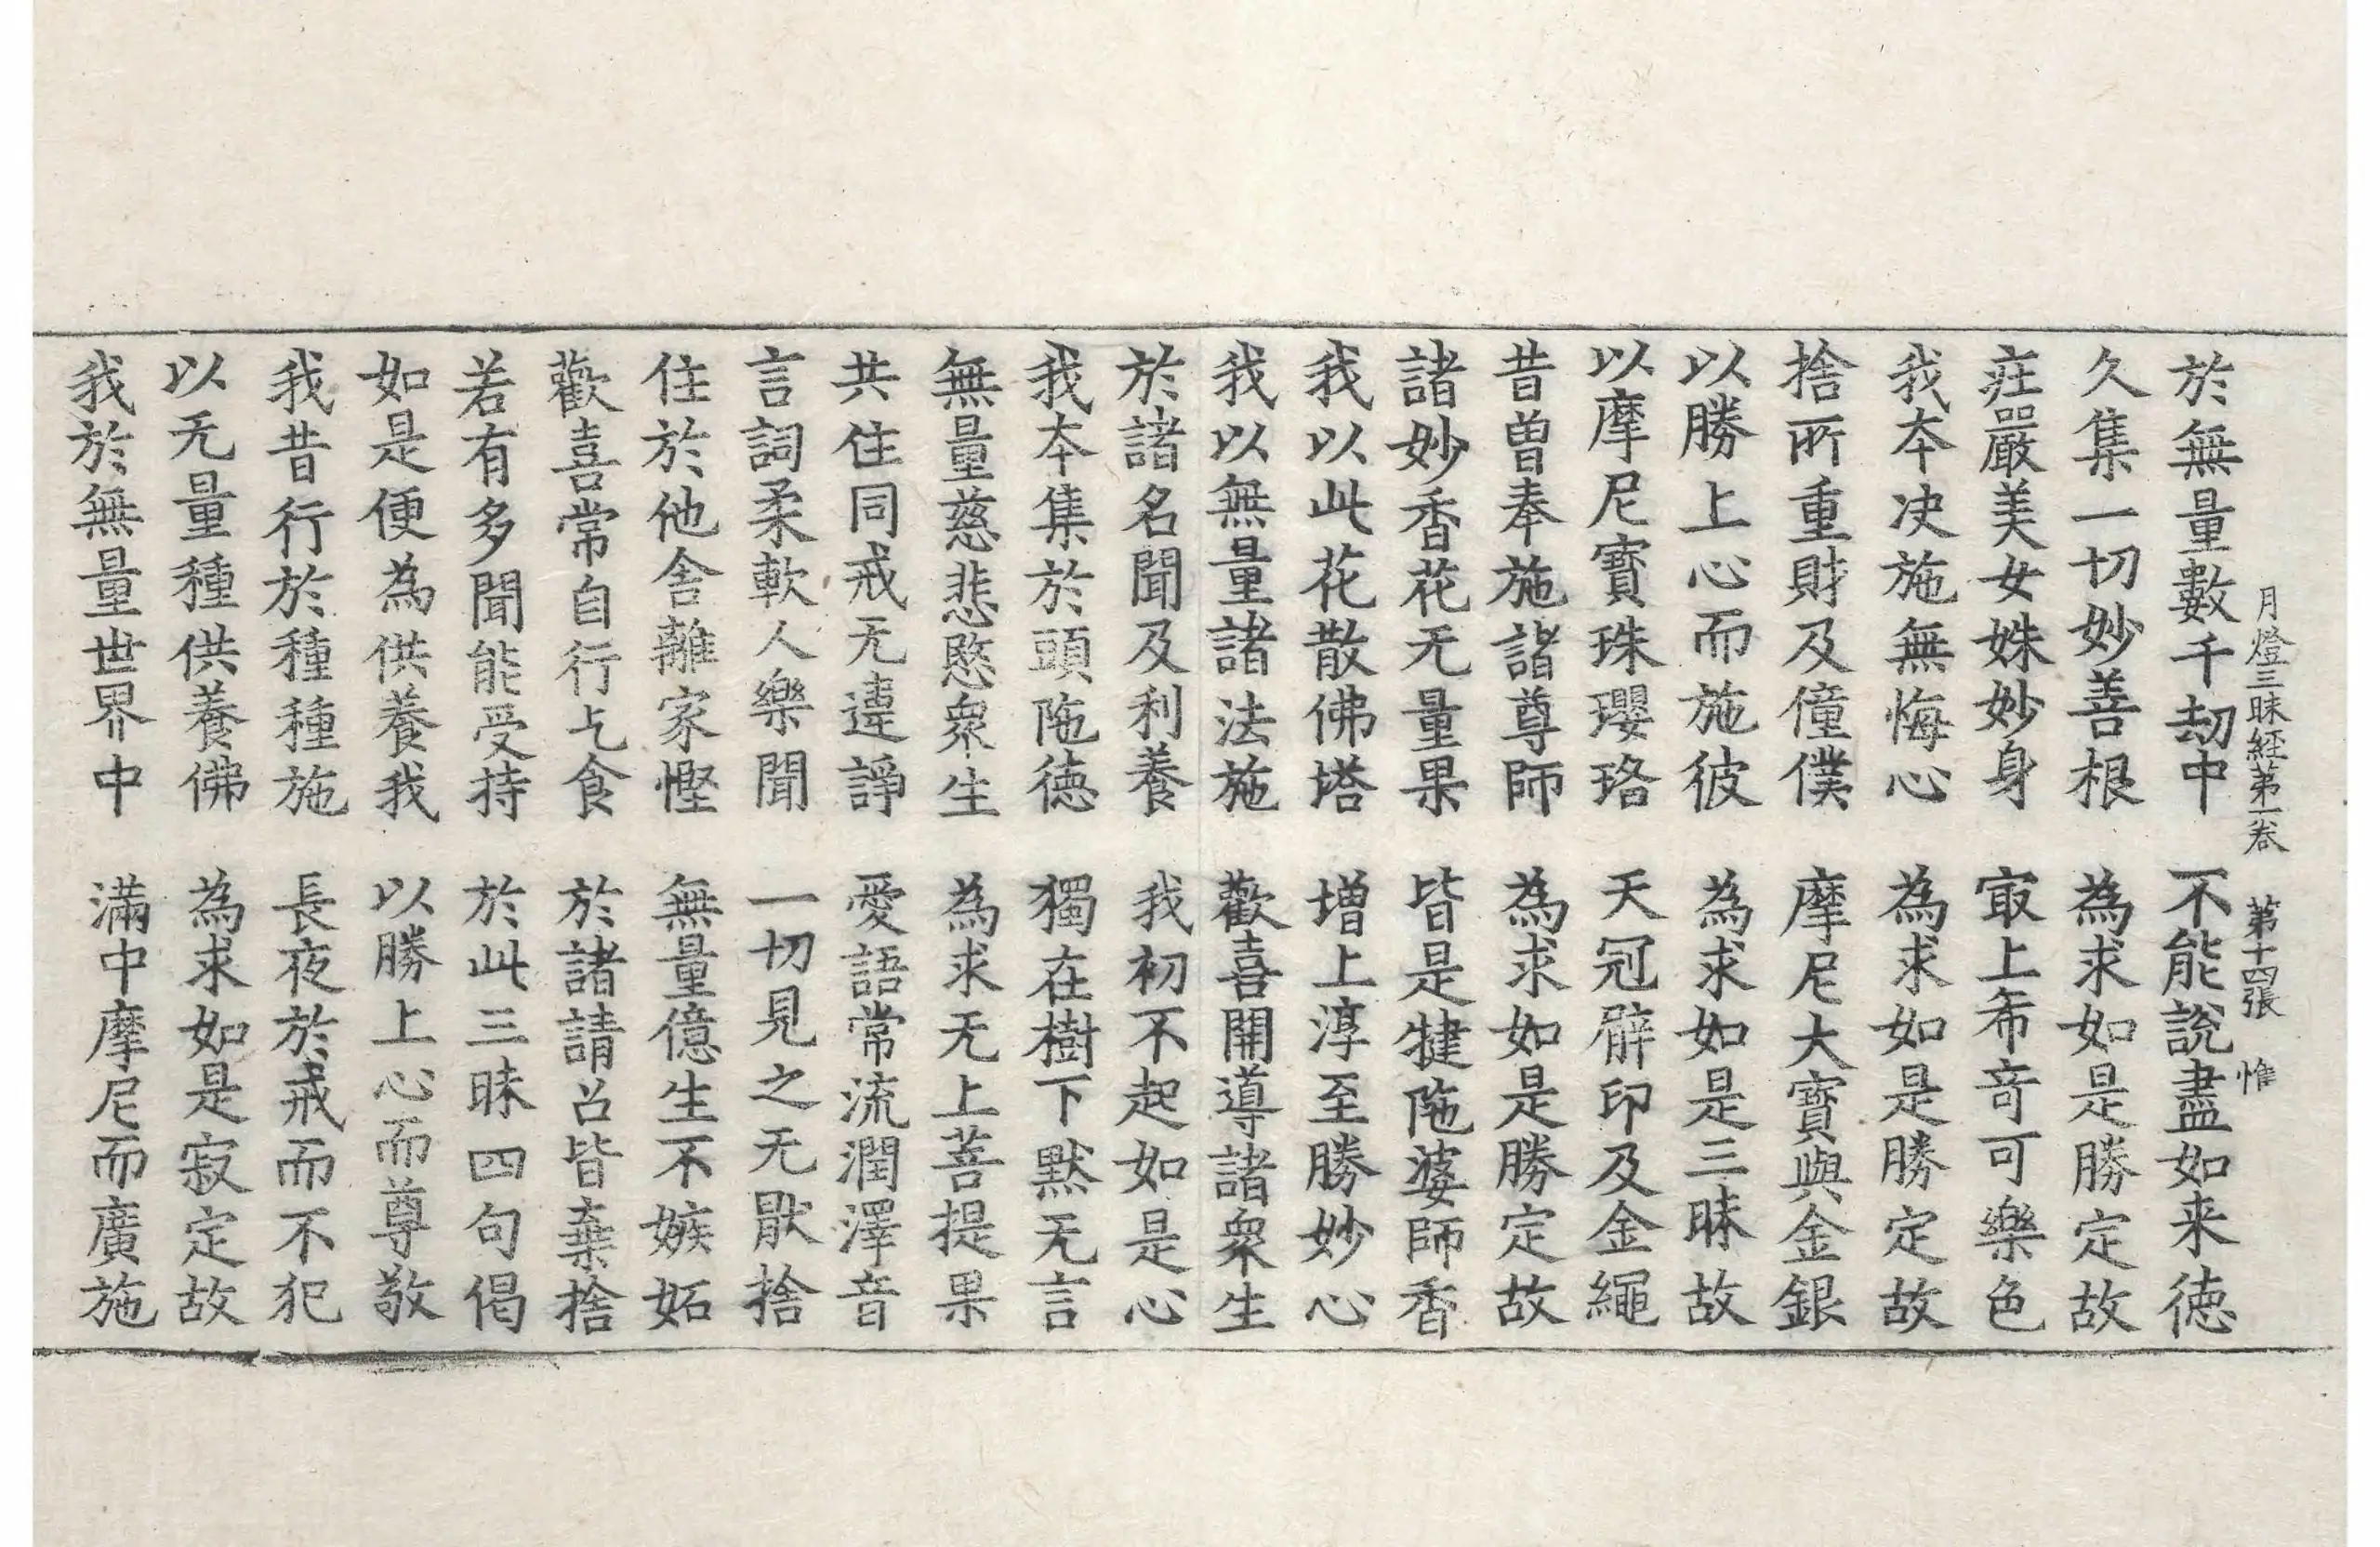 月燈三昧經第一卷 第十四張 惟
於無量數千劫中 不能說盡如来徳
久集一切妙善根 為求如是勝定故
莊嚴美女姝妙身 㝡上希竒可樂色
我夲决施無悔心 為求如是勝定故
捨所重財及僮僕 摩尼大寶與金銀
以勝上心而施彼 為求如是三昧故
以摩尼寶珠瓔珞 天冠臂印及金繩
昔曾奉施諸尊師 為求如是勝定故
諸妙香花无量果 皆是揵陁婆師香
我以此花散佛塔 増上淳至勝妙心
我以無量諸法施 歡喜開導諸衆生
於諸名聞及利養 我初不起如是心
我夲集於頭陁徳 獨在樹下默无言
無量慈悲愍衆生 為求无上菩提果
共住同戒无違諍 愛語常流潤澤音
言詞柔軟人樂聞 一切見之无猒捨
住於他舍離家慳 無量億生不嫉妬
歡喜常自行乞食 於諸請召皆棄捨
若有多聞能受持 於此三昧四句偈
如是便為供養我 以勝上心而尊敬
我昔行於種種施 長夜於戒而不犯
以无量種供養佛 為求如是寂定故
我於無量世界中 滿中摩尼而廣施